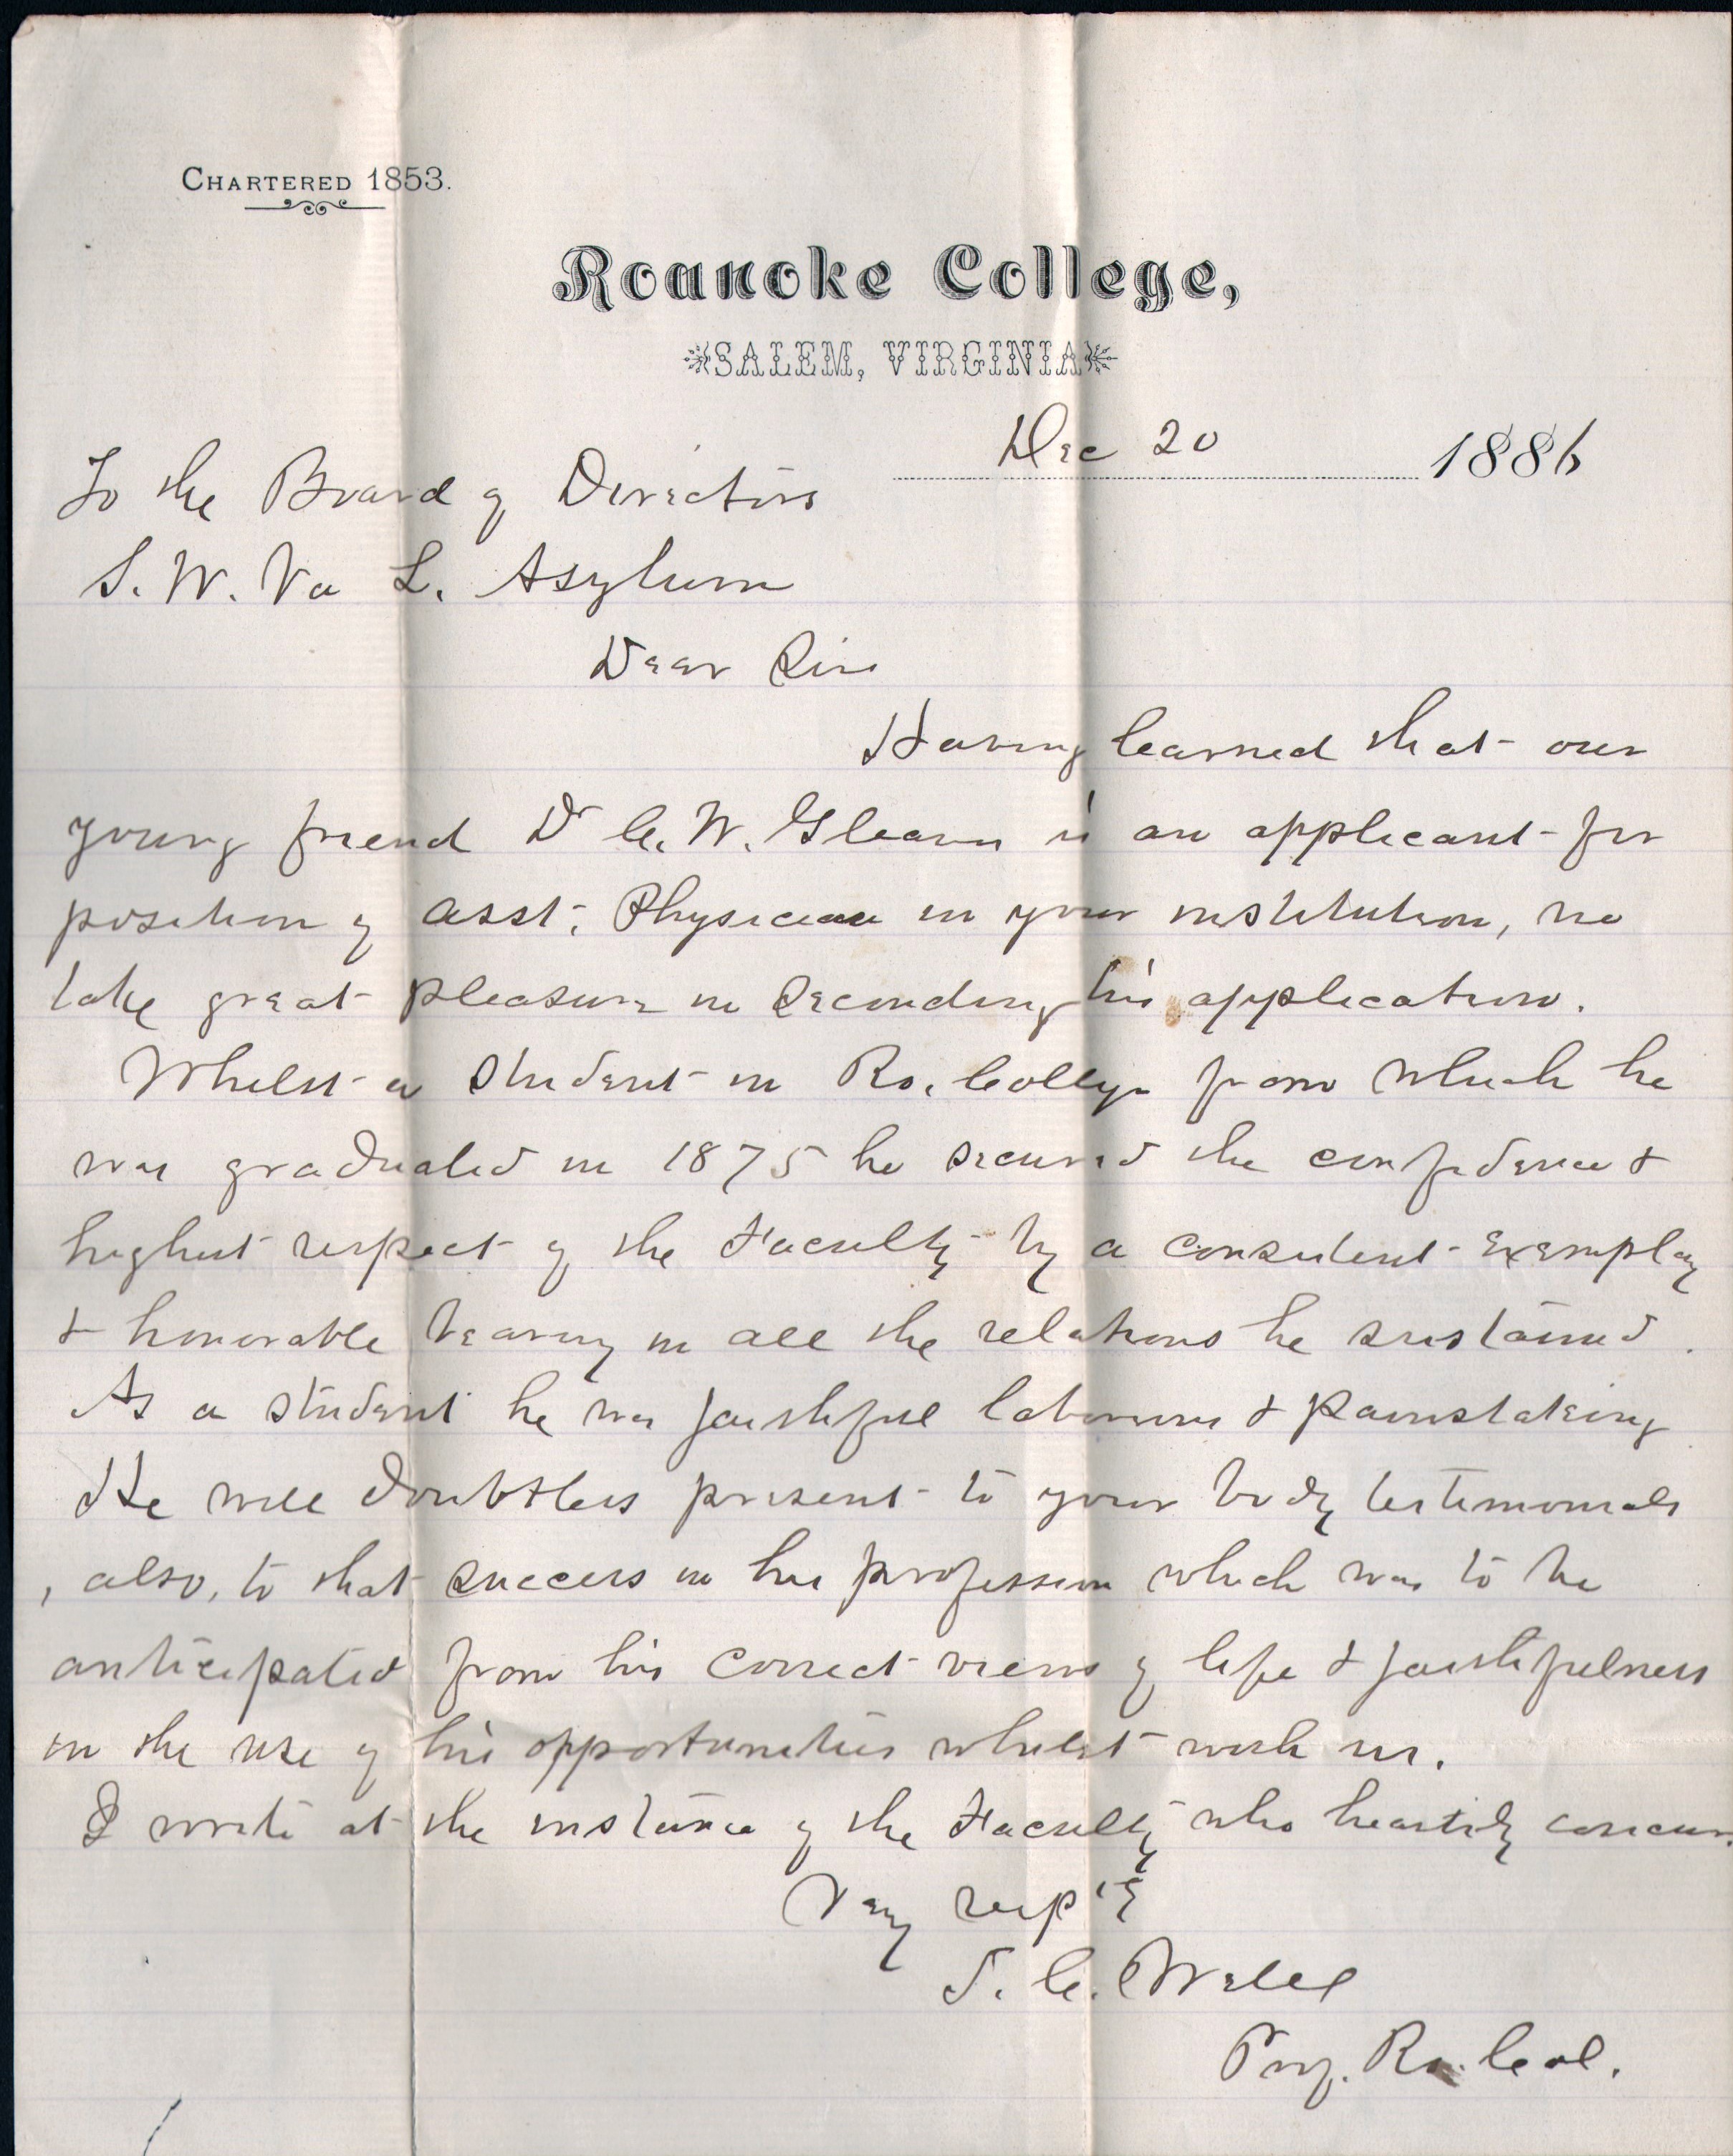 CHARTERED 1853.
Roanoke College,
SALEM, VIRGINIA
Dec 20 1886
To the Board of Directors
S. W. Va L. Asylum
Dear Sirs
Having learned that our
young friend Dr C. W. Gleaves is an applicant for
position of asst. Physician in your institution, we
take great pleasure in seconding his application.
Whilst a student in Ro. College from which he
was graduated in 1875 he secured the confidence &
highest respect of the Faculty by a consistent exemplary
& honorable bearing in all the relations he sustained.
As a student he was faithful laborious & painstaking
He will doubtless present to your body testimonials
, also, to that success in his profession which was to be
anticipated from his correct views of life & faithfulness
in the use of his opportunities whilst with us.
I write at the instance of the Faculty who heartily concur.
Very resp'y
S. C. Wells
Prof. Ro. Col.